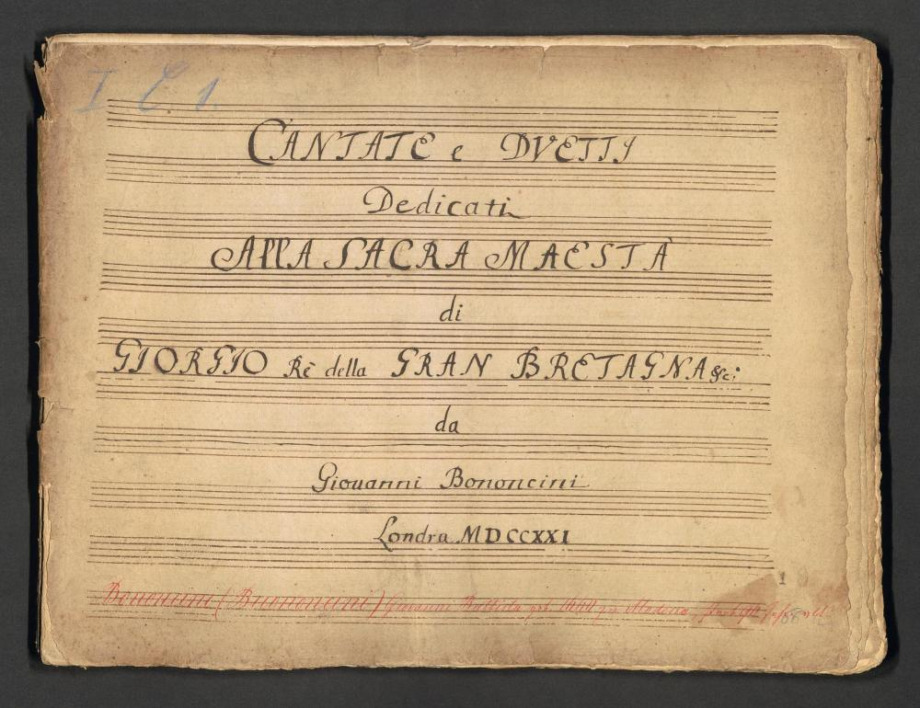 I C. 1.
CANTATE e DVETTI
Dedicati
AllA SACRA MAESTÀ
di
GIORGIO Rè della GRAN BRETAGNA &c:
da
Giouanni Bononcini
Londra MDCCXXI
1
Bononcini (Buononcini) Giovanni Battista geb. zu Modena